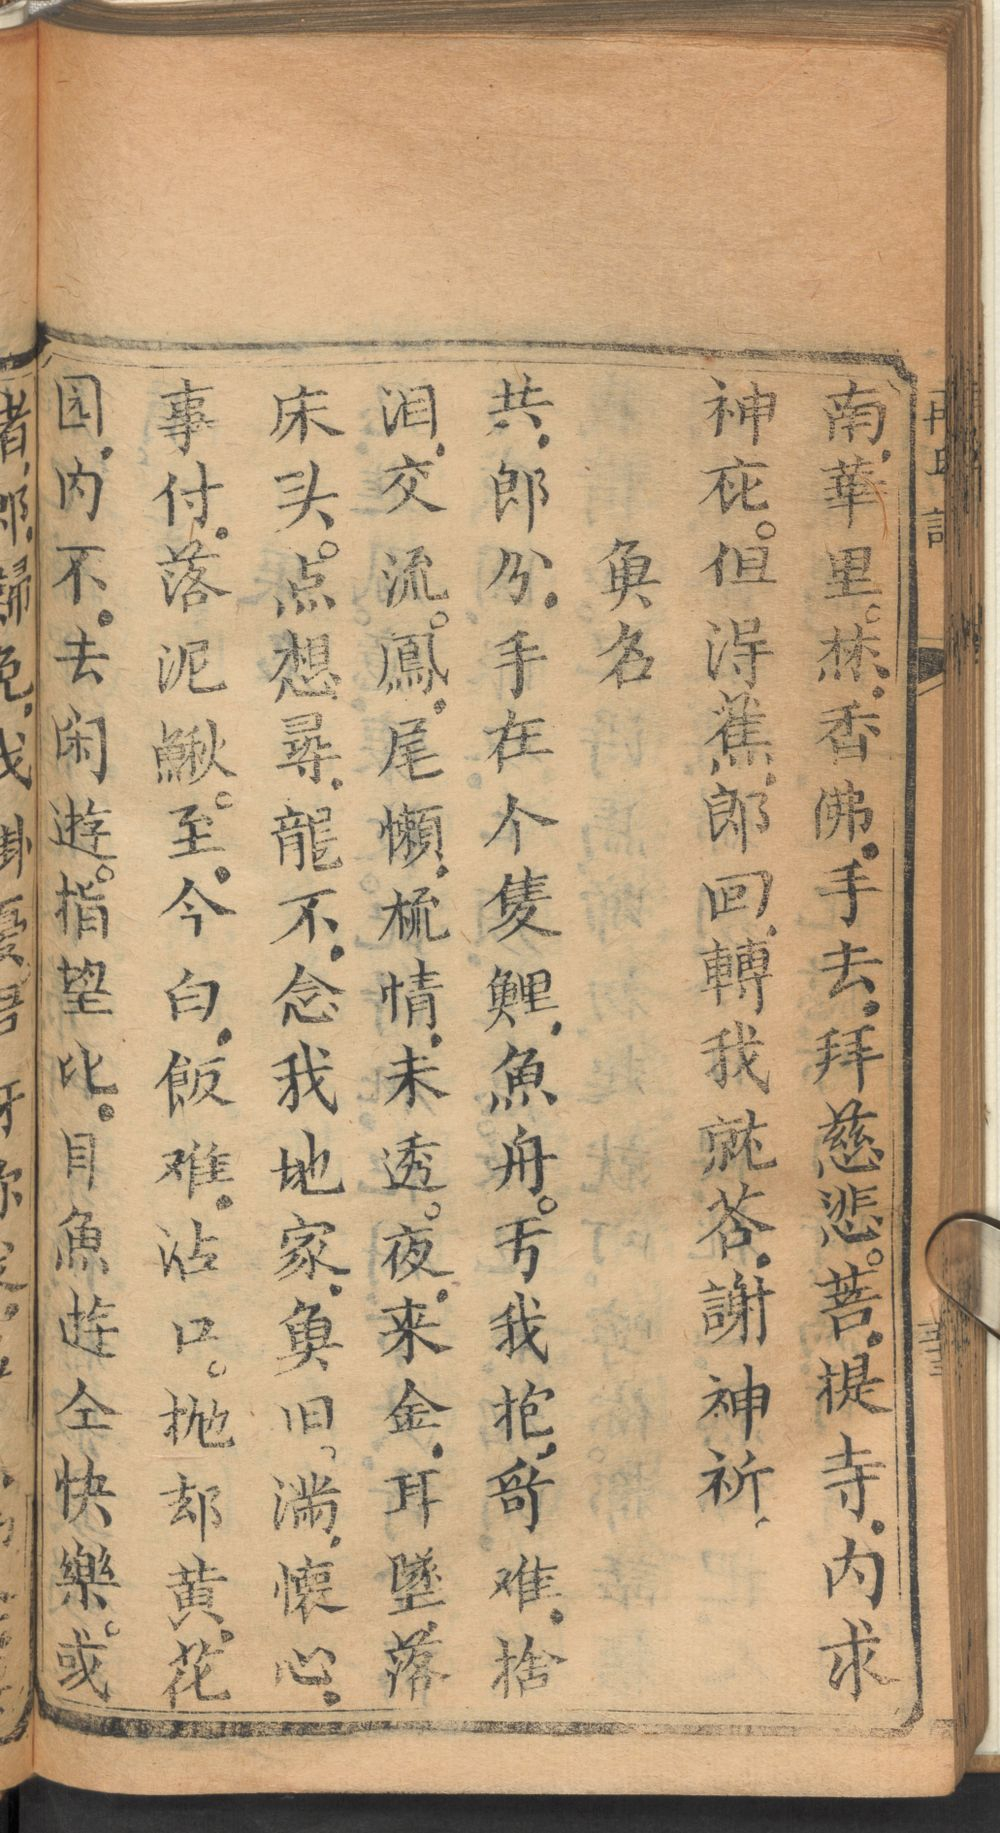 南華里。㷊香佛手去拜慈悲。菩提寺内求
神庇。但淂蕉郎回轉我就荅謝神祈
奐名
共郎分手在个隻鯉魚舟。丐我抱奇难捨
泪交流。鳳尾懶梳情未透。夜来金耳墜落
床头。点想尋龍不念我地家奐旧。満懷心
事付落泥鰍。至今白飯难沾口。抛却黄花
园内不去闲遊。指望比目魚遊仝快樂。或